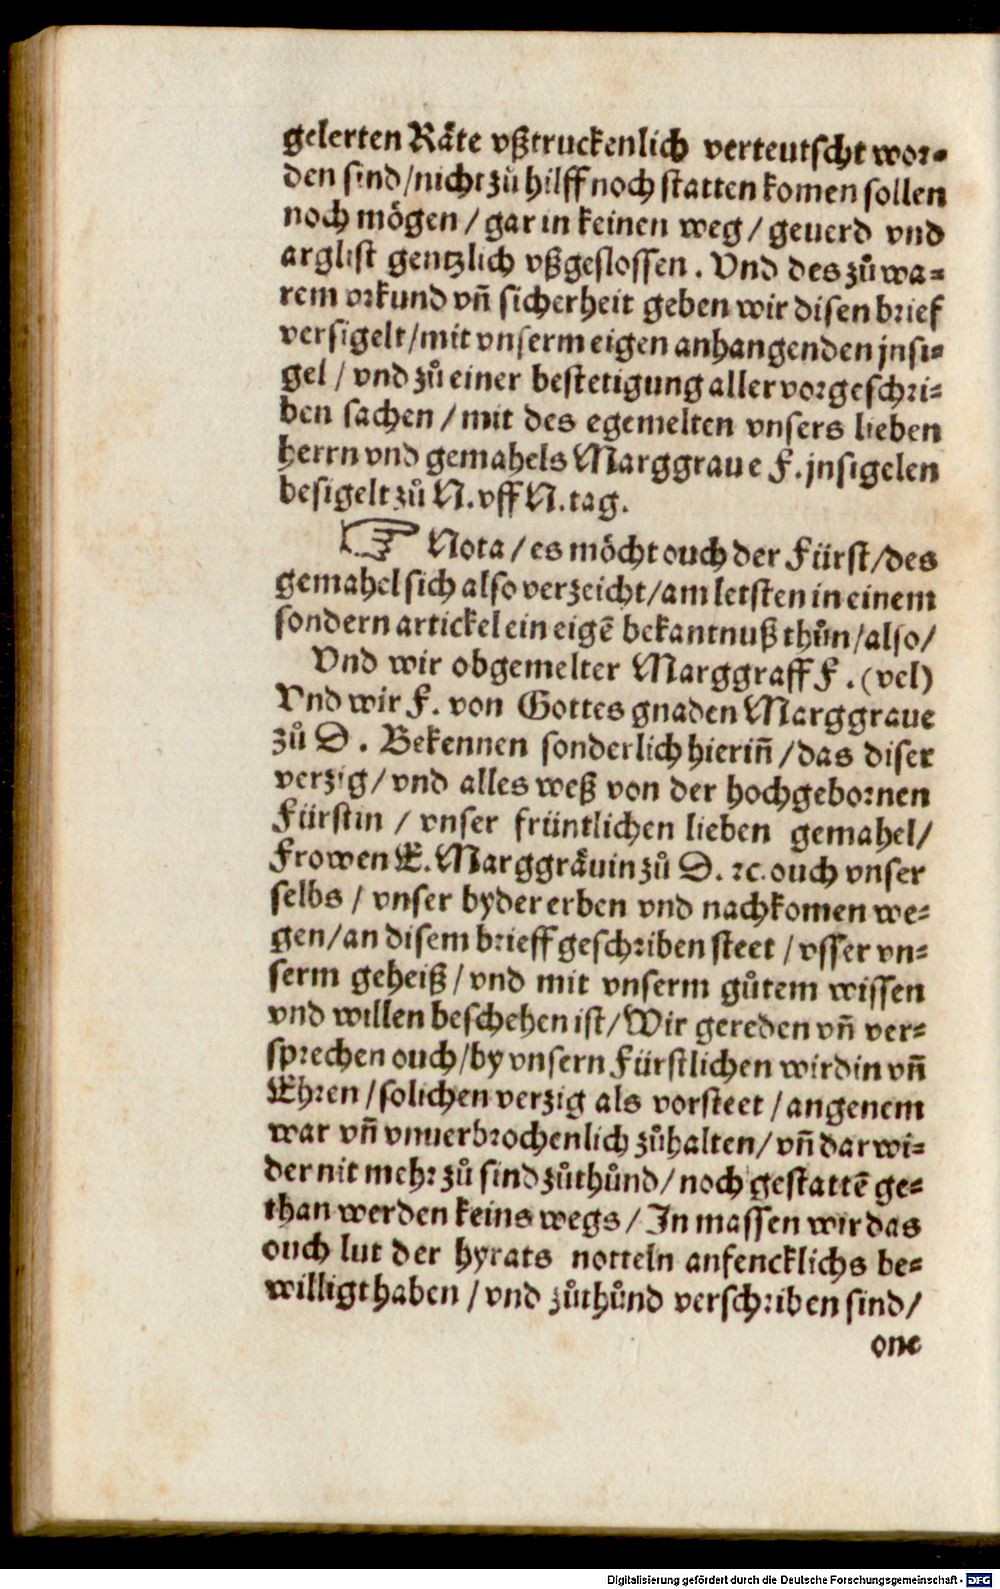 gelerten Råte vßtruckenlich verteutscht wor-
den sind/nicht zů hilff noch statten komen sollen
noch mögen / gar in keinen weg / geuerd vnd
arglist gentzlich vßgeslossen. Vnd des zů wa-
rem vrkund vñ sicherheit geben wir disen brief
versigelt/mit vnserm eigen anhangenden jnsi-
gel / vnd zů einer bestetigung aller vorgeschri-
ben sachen / mit des egemelten vnsers lieben
herrn vnd gemahels Marggraue F. jnsigelen
besigelt zů N. vff N. tag.
☞ Nota / es möcht ouch der Fürst/des
gemahel sich also verzeicht/am letsten in einem
sondern artickel ein eigē bekantnuß thůn/also/
Vnd wir obgemelter Marggraff F. (vel)
Vnd wir F. von Gottes gnaden Marggraue
zů D. Bekennen sonderlich hieriñ /das diser
verzig/vnd alles weß von der hochgebornen
Fürstin / vnser früntlichen lieben gemahel/
Frowen E. Marggråuin zů D. ꝛc. ouch vnser
selbs / vnser byder erben vnd nachkomen we-
gen/an disem brieff geschriben steet / vsser vn-
serm geheiß/vnd mit vnserm gůtem wissen
vnd willen beschehen ist/Wir gereden vñ ver-
sprechen ouch/by vnsern Fürstlichen wirdin vñ
Ehren /solichen verzig als vorsteet /angenem
war vñ vnuerbrochenlich zůhalten/vñ dar wi-
der nit mehr zů sind zůthůnd/noch gestattē ge-
than werden keins wegs / In massen wir das
ouch lut der hyrats notteln anfencklichs be-
willigt haben /vnd zůthůnd verschriben sind/
one
Digitalisierung gefördert durch die Deutsche Forschungsgemeinschaft - DFG